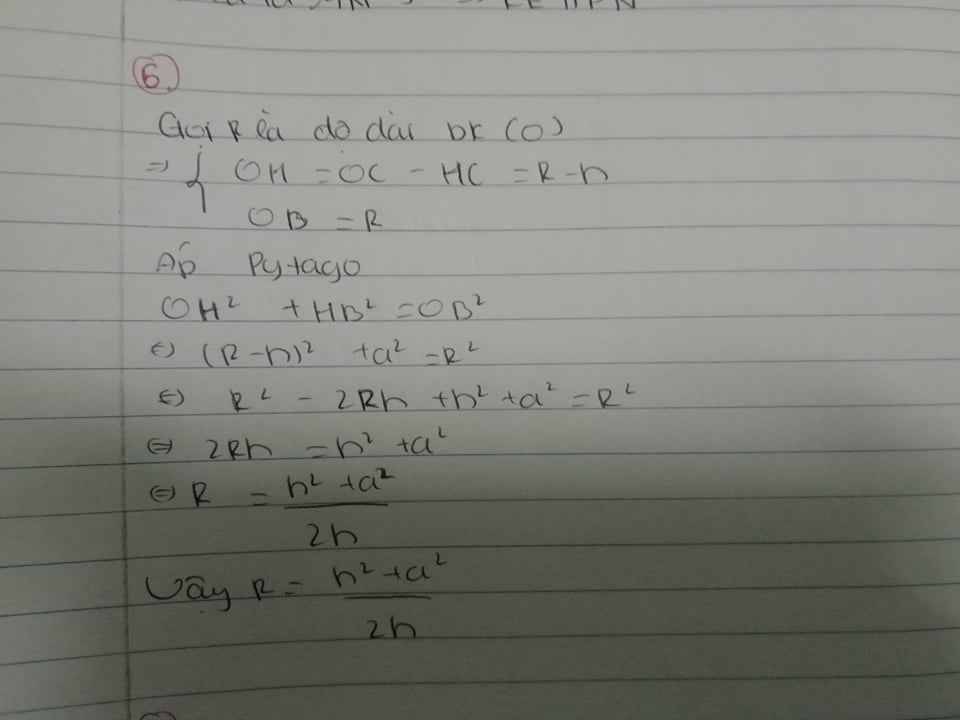 6.
Gọi R là độ dài bk (O)
⇒ { OH = OC - HC = R - h
OB = R
Áp Pytago
OH² + HB² = OB²
⇔ (R - h)² + a² = R²
⇔ R² - 2Rh + h² + a² = R²
⇔ 2Rh = h² + a²
⇔ R = h² + a²
2h
Vậy R = h² + a²
2h